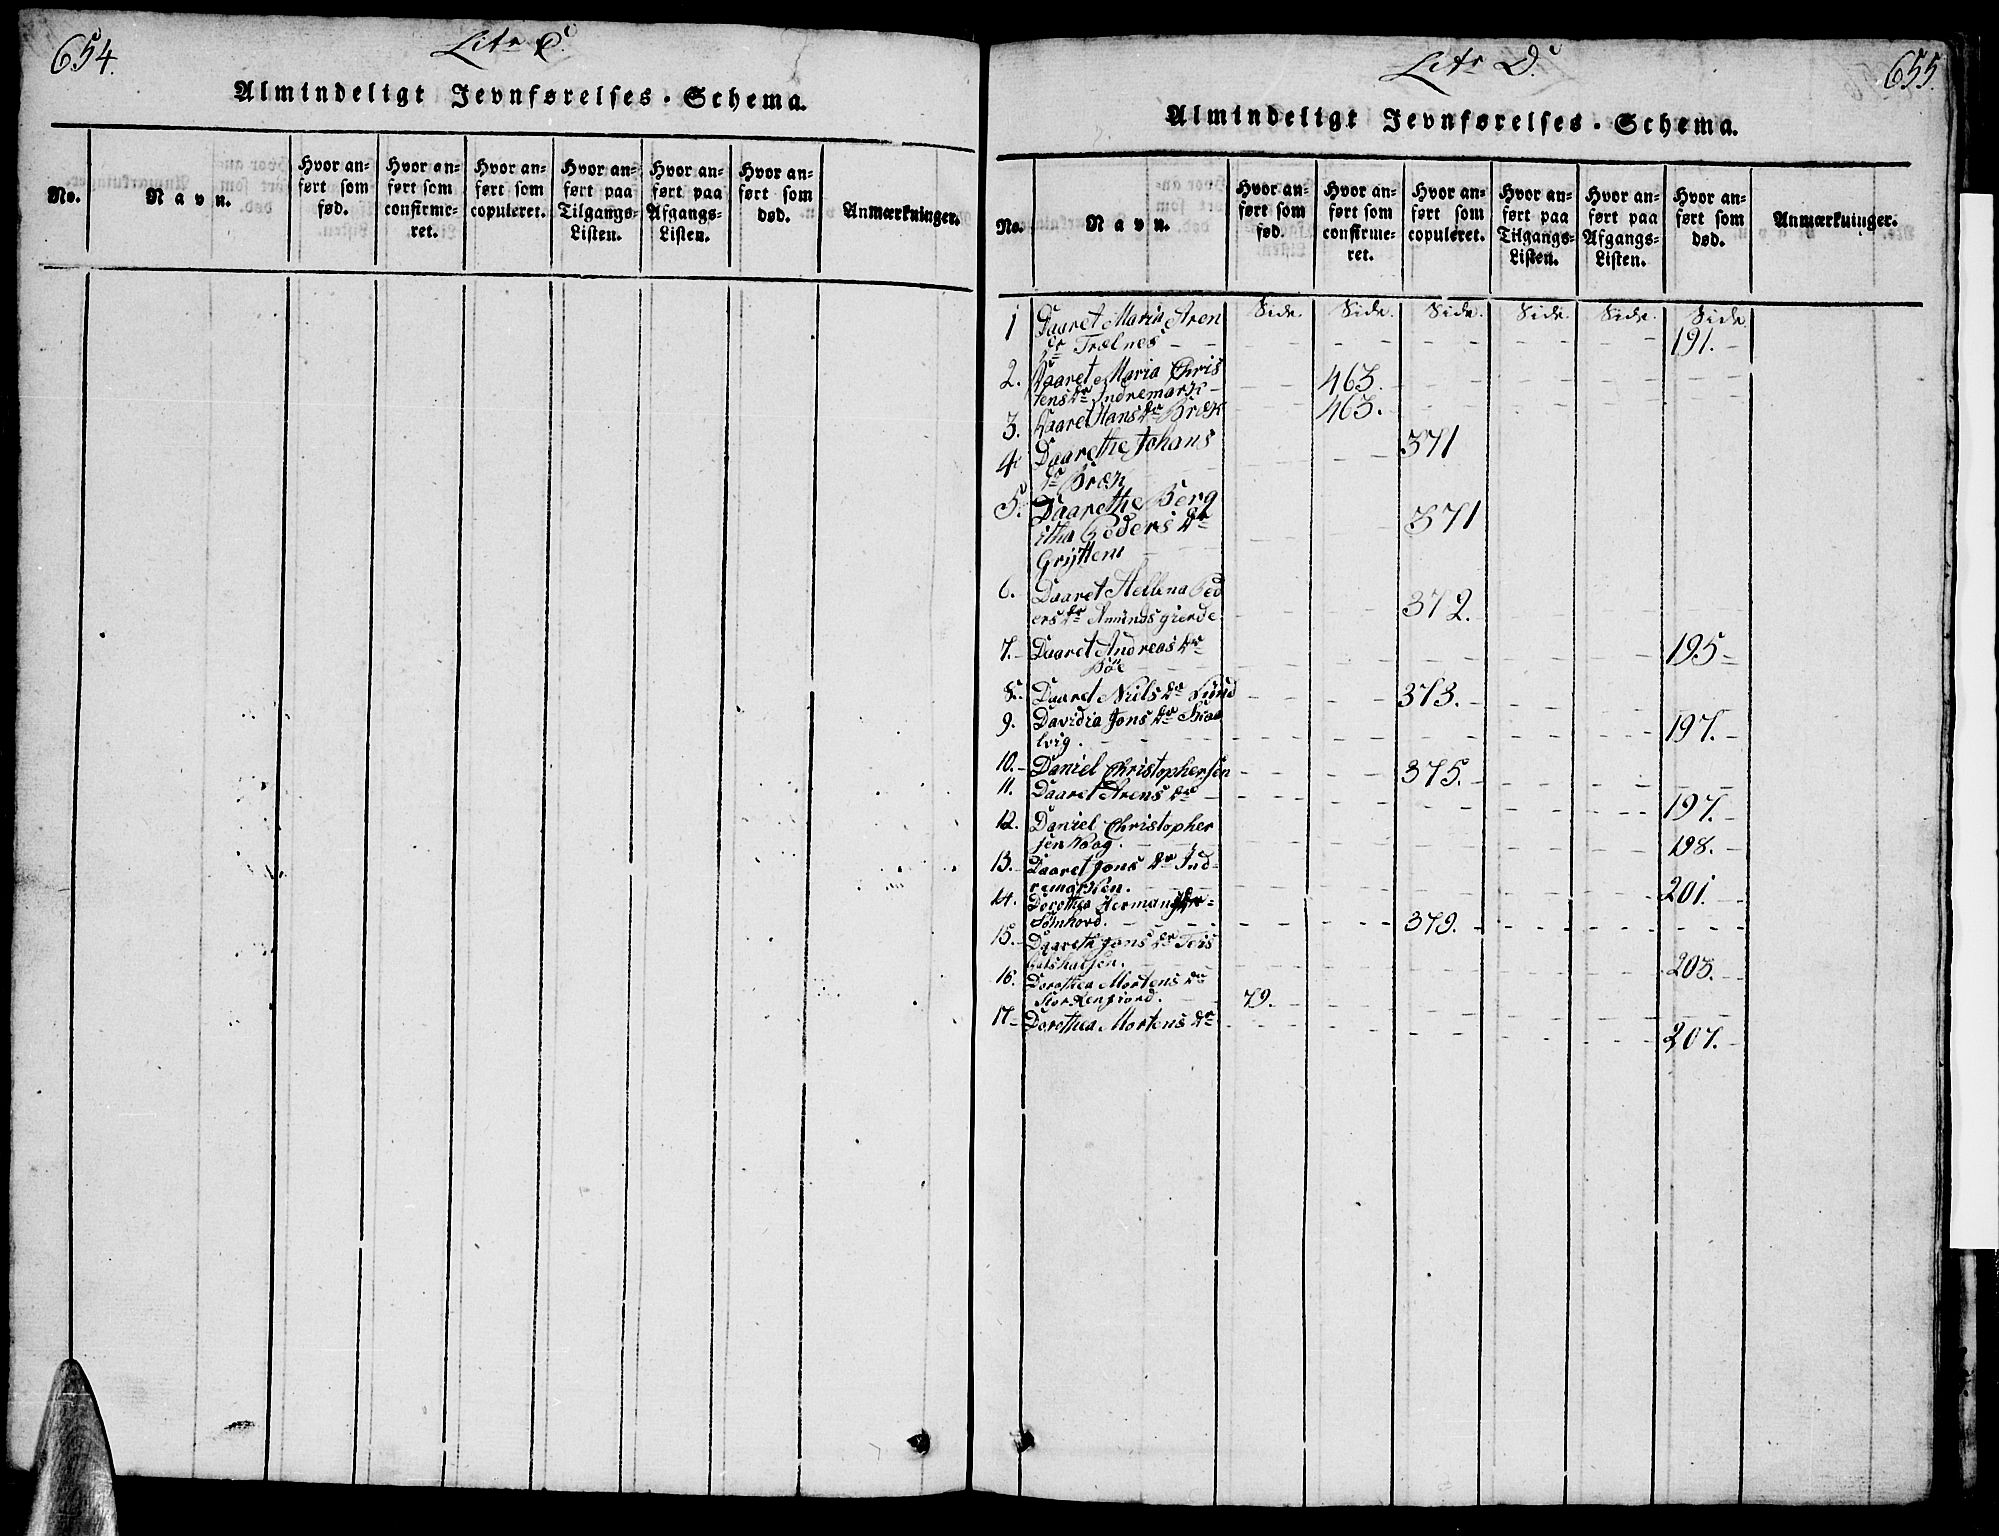 654.
Litr C.
Almindeligt Jevnførelses-Schema.
No.
Navn.
Hvor anført som fød.
Hvor anført som confirmeret.
Hvor anført som copuleret.
Hvor anført paa Tilgangs-Listen.
Hvor anført paa Afgangs-Listen.
Hvor anført som død.
Anmærkninger.
655.
Litr D.
Almindeligt Jevnførelses-Schema.
No.
Navn.
Hvor anført som fød.
Hvor anført som confirmeret.
Hvor anført som copuleret.
Hvor anført paa Tilgangs-Listen.
Hvor anført paa Afgangs-Listen.
Hvor anført som død.
Anmærkninger.
Side. Side. Side. Side. Side. Side.
1 Daaret Maria Aren
dr Trælnes 191.
2. Daaret Maria Chris
tensdr Indremark 463.
3. Daaret Hansdr Bræk 463.
4. Daarethe Johans
dr Bræk 371
5. Daarethe Berg
itha Pedersdr
Gryttens 371
6. Daaret Hellena Ped
ersdr Amundsgierde 372.
7. Daaret Andreasdr
Bøe 195
8. Daaret Nielsdr Lund 373.
9. Davidia Jonsdr
lvig. 197.
10. Daniel Christophersen 375.
11. Daaret Arensdr 197.
12. Daniel Christopher
sen Vaag. 198.
13. Daaret Jonsdr Ind
remarken. 201.
14. Dorothea Hermansdr
379.
15. Daareth Jonsdr
203.
16. Dorothea Mortensdr
79.
17 Dorothea Mortensdr 207.